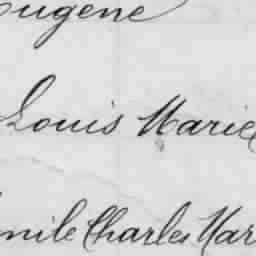 Eugène
Louis Marie
Emile Charles Mar